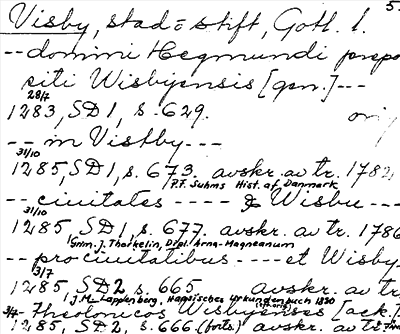 5
Visby, stad o stift, Gotl. l.
-- domini Hegmundi prepo
siti Wisbyensis [gen.] ---
28/7
1283, SD 1, s. 629. ori
-- in Vistby ---
31/10
1285, SD 1, s. 673. avskr. av tr. 1782
/P.F. Suhms Hist. af Danmark
-- ciuitates ---- & Wisbu ---
31/10
1285, SD 1, s. 677. avskr. av tr. 1786
/Grim. J. Thorkelin, Dipl. Arna-Magnæanum
-- pro ciuitatibus ---- et Wisby
3/7
1285, SD 2, s. 665 avskr. av tr.
/J.M. Lappenberg, Hansisches Urkundenbuch 1830
-- Theotonicos Wisbyenses [ack.]
3/7
1285, SD 2, s. 666 (forts.) avskr. av tr.